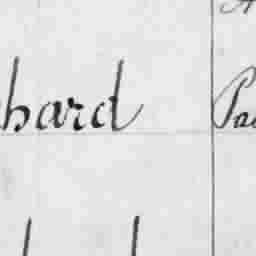 hard Pa